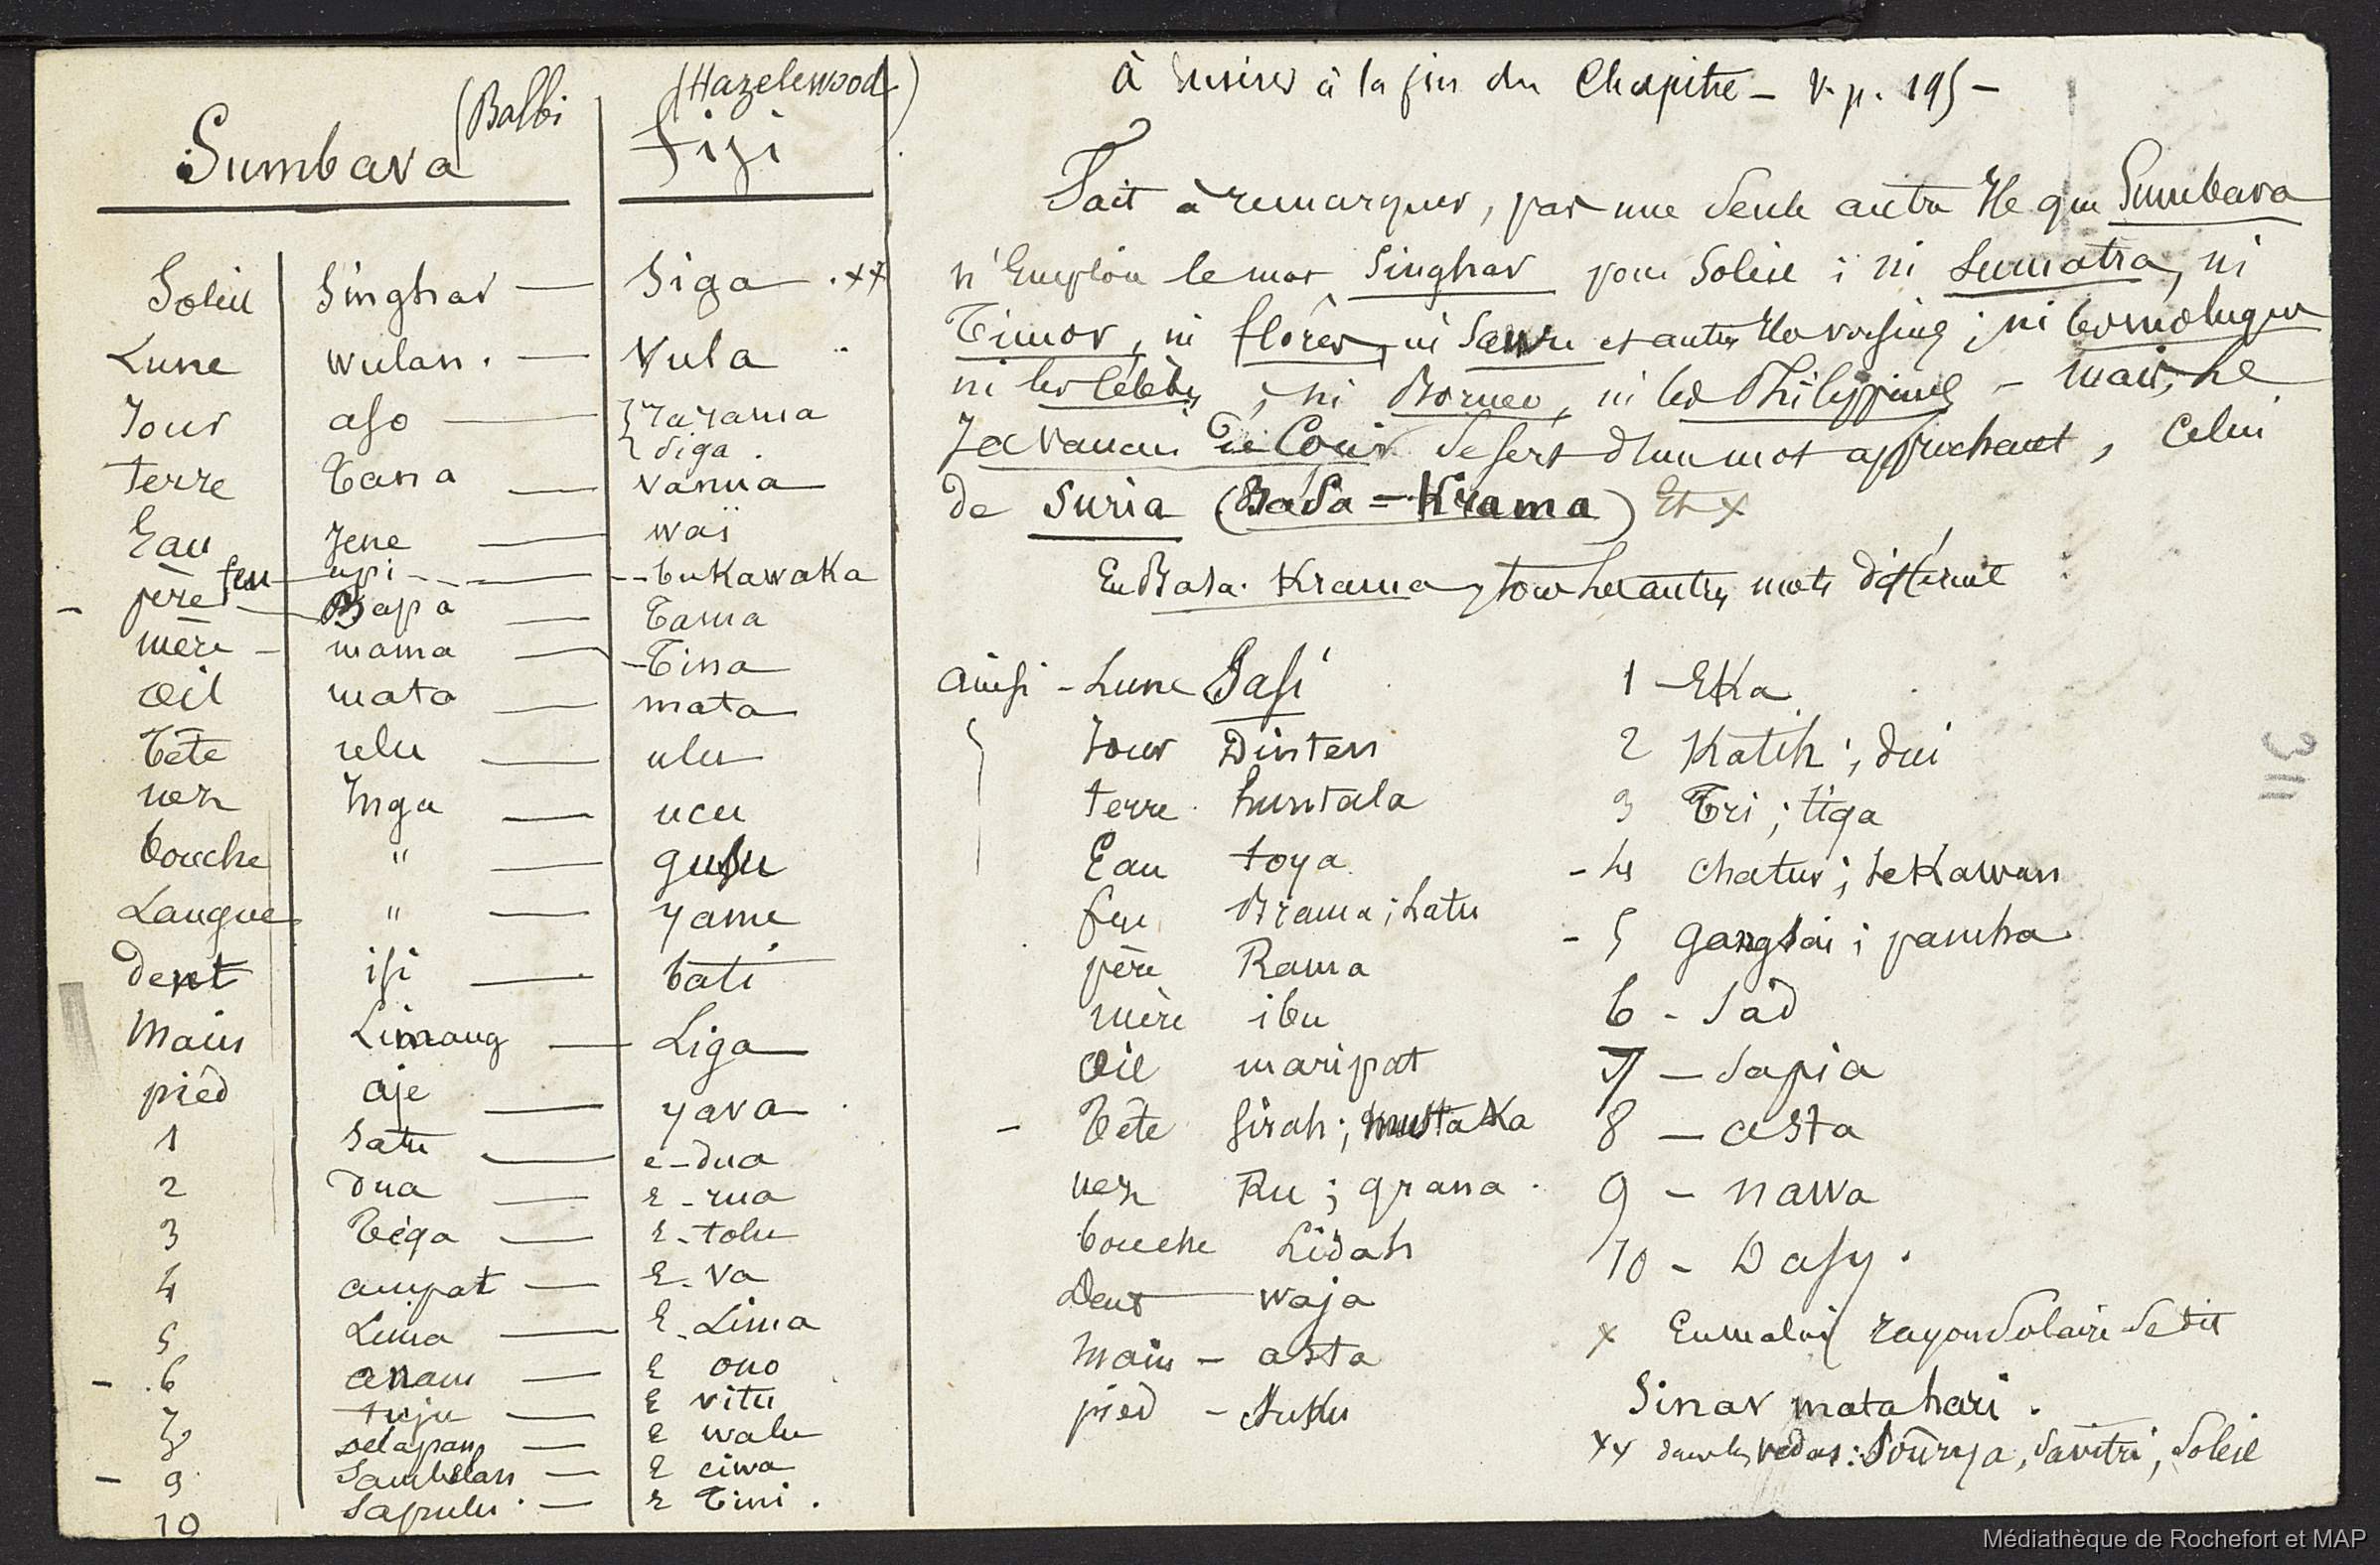 Sumbava (Balbi
(Hazelewood)
Fiji
Soleil Singhar — Siga . xx
Lune wulan . — Vula
Jour aso — { rarama
{ siga .
terre Tana — vanua
Eau Jene — waï
feu — api — bukawaka
- père — Bapa — Tama
mère — mama — Tina
œil mata — mata
Tête ulu — ulu
nez Inga — ucu
bouche " — gusu
Langue " — yame
Dent isi — bati
Main Limang — Liga
pied aje — yava .
1 satu — e-dua
2 dua — e-rua
3 Tiga — e-tolu
4 ampat — E-va
5 Lima — E-Lima
- 6 anam — E ono
7 tuju — E vitu
8 Delapan — e walu
- 9 Sambelan — E ciwa
10 Sapulu . — E Tini .
à insérer à la fin du Chapitre — V. p. 195 —
Fait à remarquer, pas une seule autre île que Sumbava
n'emploie le mot Singhar pour Soleil ; ni Sumatra, ni
Timor, ni florès, ni Savu et autres îles voisines ; ni les moluques
ni les Célèbes ; ni Borneo, ni les Philippines — mais, le
Javanais de Cour se sert d'un mot approchant, celui
de Suria (Basa = Krama) Et x
En Basa Krama, tous les autres mots diffèrent
ainsi - Lune Sasi
Jour Dinten
terre huntala
Eau toya
feu Brama ; Latu
père Rama
mère ibu
œil maripat
- Tête sirah ; mustaka
nez Ru ; grana .
bouche Lidah
Dent — waja
Main — asta
pied — suku
1 — Eka
2 Katih ; dui
3 Tri ; tiga
- 4 chatur ; sekawan
- 5 gangsai ; pancha
6 - sad
7 — sapia
8 — asta
9 — nawa
10 — Dasy .
x En malais rayon solaire se dit
Sinar matahari .
xx dans les vedas : Soûrya, Savitri, Soleil
311
Médiathèque de Rochefort et MAP